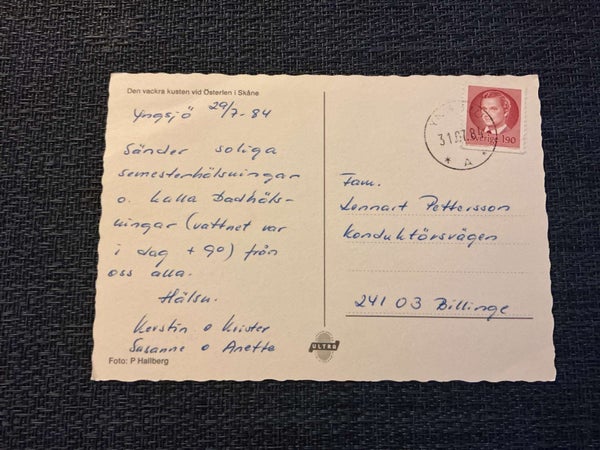 Den vackra kusten vid Österlen i Skåne
Yngsjö 29/7-84
Sänder soliga
semesterhälsningar
o. kalla Badhäls-
ningar (vattnet var
i dag + 9°) från
oss alla.
Hälsn.
Kerstin o Krister
Susanne o Anette
Foto: P Hallberg
ULTRA
31.07.84
A
Sverige 190
Fam.
Lennart Pettersson
Konduktörsvägen
241 03 Billinge